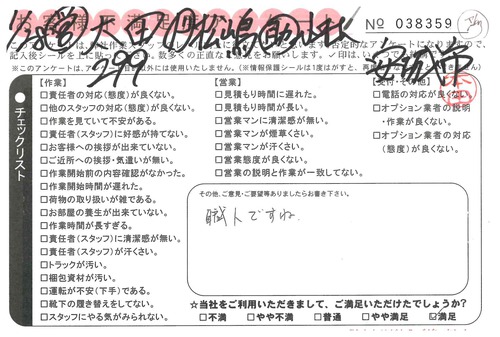 No 038359
1/28 営 太田 内 松嶋 助 山秋
299
記入後シール
※このアンケートは、
以外には使用いたしません。(※情報保護シールは1度はがすと、
チェックリスト
【作業】
□責任者の対応(態度)が良くない。
□他のスタッフの対応(態度)が良くない。
□作業を見ていて不安がある。
□責任者(スタッフ)に好感が持てない。
□お客様への挨拶が出来ていない。
□ご近所への挨拶・気遣いが無い。
□作業開始前の内容確認がなかった。
□作業開始時間が遅れた。
□荷物の取り扱いが雑である。
□お部屋の養生が出来ていない。
□作業時間が長すぎる。
□責任者(スタッフ)に清潔感が無い。
□責任者(スタッフ)が汗くさい。
□トラックが汚い。
□梱包資材が汚い。
□運転が不安(下手)である。
□靴下の履き替えをしてない。
□スタッフにやる気がみられない。
【営業】
□見積もり時間に遅れた。
□見積もり時間が長い。
□営業マンに清潔感が無い。
□営業マンが煙草くさい。
□営業マンが汗くさい。
□営業態度が良くない。
□営業の説明と作業が一致してない。
□電話の対応が良くない。
□オプション業者の説明
・作業が良くない。
□オプション業者の対応
(態度)が良くない。
その他、ご意見・ご要望等ありましたらお書き下さい。
職人ですね
☆当社をご利用いただきまして、ご満足いただけたでしょうか?
□不満 □やや不満 □普通 □やや満足 ☑満足